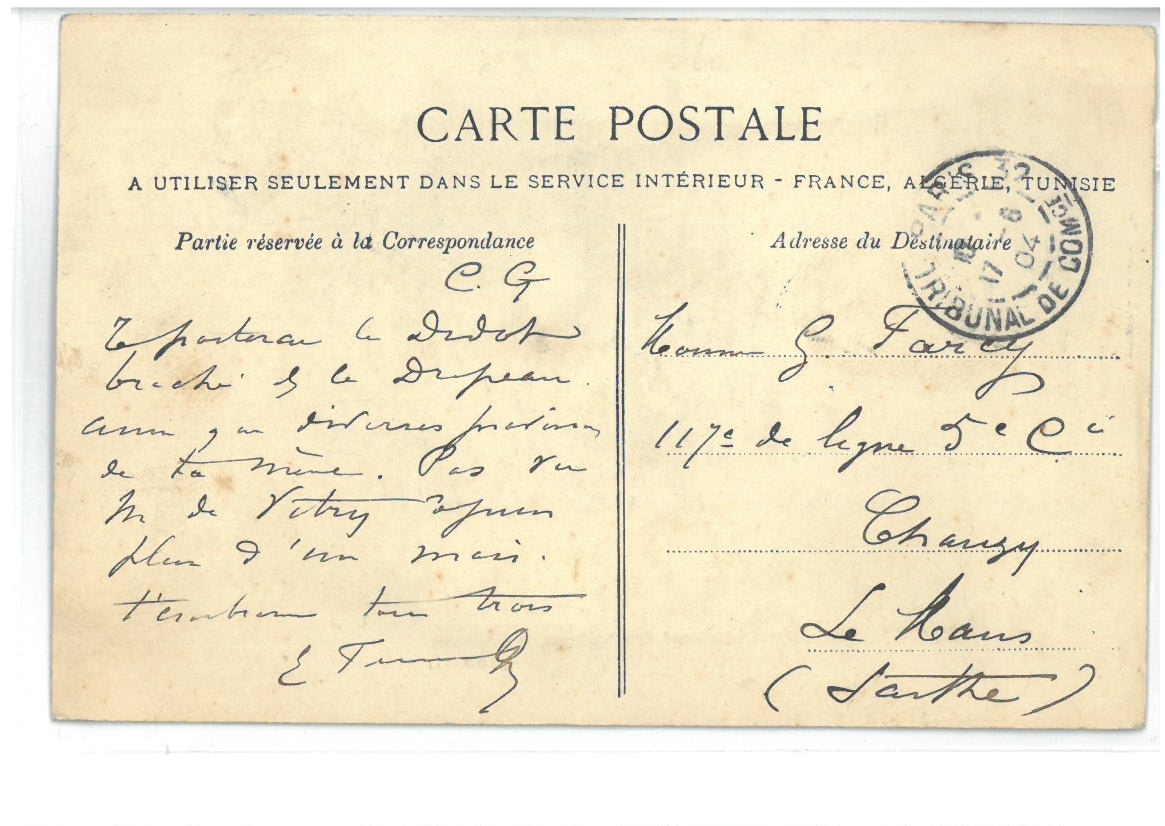 CARTE POSTALE
A UTILISER SEULEMENT DANS LE SERVICE INTÉRIEUR - FRANCE, ALGÉRIE, TUNISIE
Partie réservée à la Correspondance
C. G
Te porterai le Didot
broché et le Drapeau.
ainsi que diverses provisions
de ta mère. Pas vu
M de Vitry depuis
plus d'un mois.
t'embrassons tous trois
E
Adresse du Destinataire
PARIS 32
18
17 - 6
04
TRIBUNAL DE COMce
Monsieur G. Farcy
117e de ligne 5e Cie
Chanzy
Le Mans
(Sarthe)